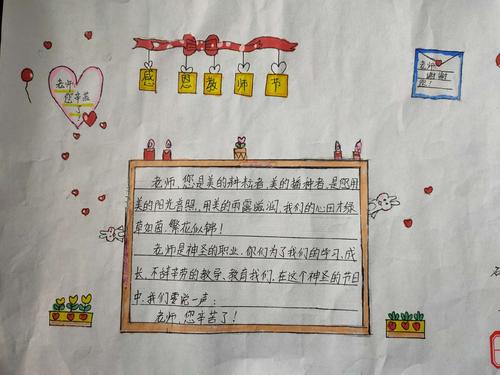 感恩教师节
老师,
您辛苦
了
老师,
谢谢
您!
老师,您是美的耕耘者,美的播种者,是您用
美的阳光普照,用美的雨露滋润,我们的心田才绿
草如茵,繁花似锦!
老师是神圣的职业,你们为了我们的学习、成
长,不辞辛劳的教导、教育我们,在这个神圣的节日
中,我们要说一声:
老师,您辛苦了!